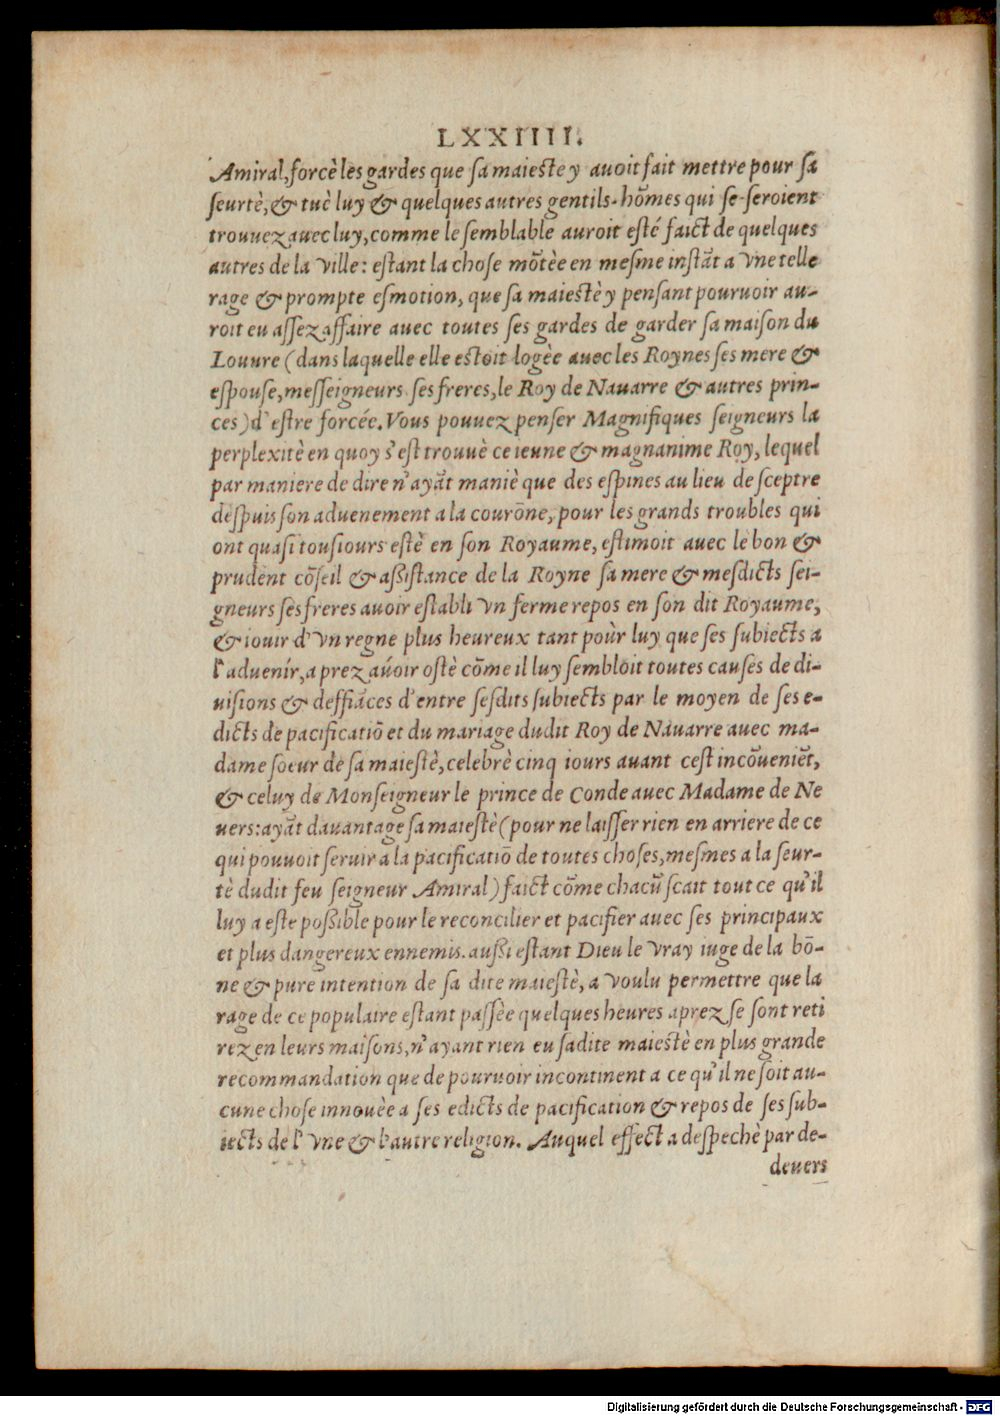 LXXIIII.
Amiral, forcè les gardes que sa maieste y auoit fait mettre pour sa
seurtè, & tuè luy & quelques autres gentils-hōmes qui se-seroient
trouuez auec luy, comme le semblable auroit esté faict de quelques
autres de la Ville: estant la chose mōtèe en mesme instāt a Vne telle
rage & prompte esmotion, que sa maiestè y pensant pouruoir au-
roit eu assez affaire auec toutes ses gardes de garder sa maison du
Louure (dans laquelle elle estoit logèe auec les Roynes ses mere &
espouse, messeigneurs ses freres, le Roy de Nauarre & autres prin-
ces) d'estre forcée. Vous pouuez penser Magnifiques seigneurs la
perplexitè en quoy s'est trouuè ce ieune & magnanime Roy, lequel
par maniere de dire n'ayāt maniè que des espines au lieu de sceptre
despuis son aduenement a la courōne, pour les grands troubles qui
ont quasi tousiours estè en son Royaume, estimoit auec le bon &
prudent cōseil & assistance de la Royne sa mere & mesdicts sei-
gneurs ses freres auoir establi Vn ferme repos en son dit Royaume,
& iouir d'Vn regne plus heureux tant pour luy que ses subiects a
l'aduenir, a prez auoir ostè cōme il luy sembloit toutes causes de di-
uisions & deffiāces d'entre sesdits subiects par le moyen de ses e-
dicts de pacificatiō et du mariage dudit Roy de Nauarre auec ma-
dame soeur de sa maiestè, celebrè cinq iours auant cest incōueniēt,
& celuy de Monseigneur le prince de Conde auec Madame de Ne
uers: ayāt dauantage sa maiestè (pour ne laisser rien en arriere de ce
qui pouuoit seruir a la pacificatiō de toutes choses, mesmes a la seur-
tè dudit feu seigneur Amiral) faict cōme chacū scait tout ce qu'il
luy a este possible pour le reconcilier et pacifier auec ses principaux
et plus dangereux ennemis. aussi estant Dieu le Vray iuge de la bō-
ne & pure intention de sa dite maiestè, a Voulu permettre que la
rage de ce populaire estant passèe quelques heures aprez se sont reti
rez en leurs maisons, n'ayant rien eu sadite maiestè en plus grande
recommandation que de pouruoir incontinent a ce qu'il ne soit au-
cune chose innouèe a ses edicts de pacification & repos de ses sub-
iects de l'Vne & l'autre religion. Auquel effect a despechè par de-
deuers
Digitalisierung gefördert durch die Deutsche Forschungsgemeinschaft - DFG